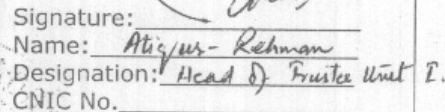 Signature:
Name: Atiq-ur-Rehman
Designation: Head of Trustee Unit I.
CNIC No.